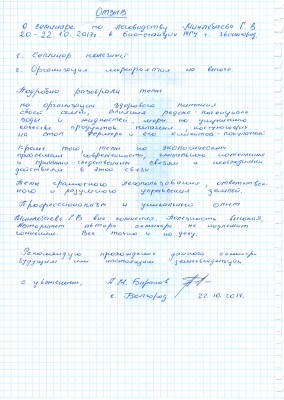 Отзыв
О семинаре по лесоводству Минлебаева Г.В
20-22.10.2017г. в биостанции МГУ г. Звенигород.
1. Семинар полезный
2. Организация мероприятия на высоте.
Подробно разобраны темы
по организации здорового питания
своей семьи, влияния редокс-потенциала
воды и жидкостей, меры по улучшению
качества продуктов питания, поступающих
на стол фермера и его клиентов-покупателей
Кроме того, темы по экологическим
проблемам современности,
и причинно следственных связях и необходимых
действиях в этой связи
Тема грамотного лесопользования, ответствен-
ного и разумного управления землёй.
Профессионализм и уникальный опыт
Минлебаева Г.В вне сомнения. Полезность высокая.
Авторитет автора семинара не подлежит
сомнению. Все точно и по делу.
Рекомендую прохождение данного семинара
будущим или настоящим землевладельцам
с уважением, А.М. Баранов
г. Белгород 22.10.2017.